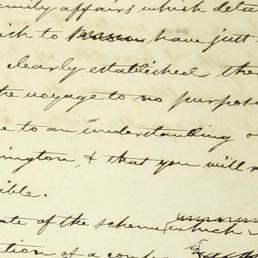 family affairs which deta
ish to have just
clearly established the
the voyage to no purpos
e to an understanding o
ington, & that you will
ible.
ate of the scheme, which
tion of a